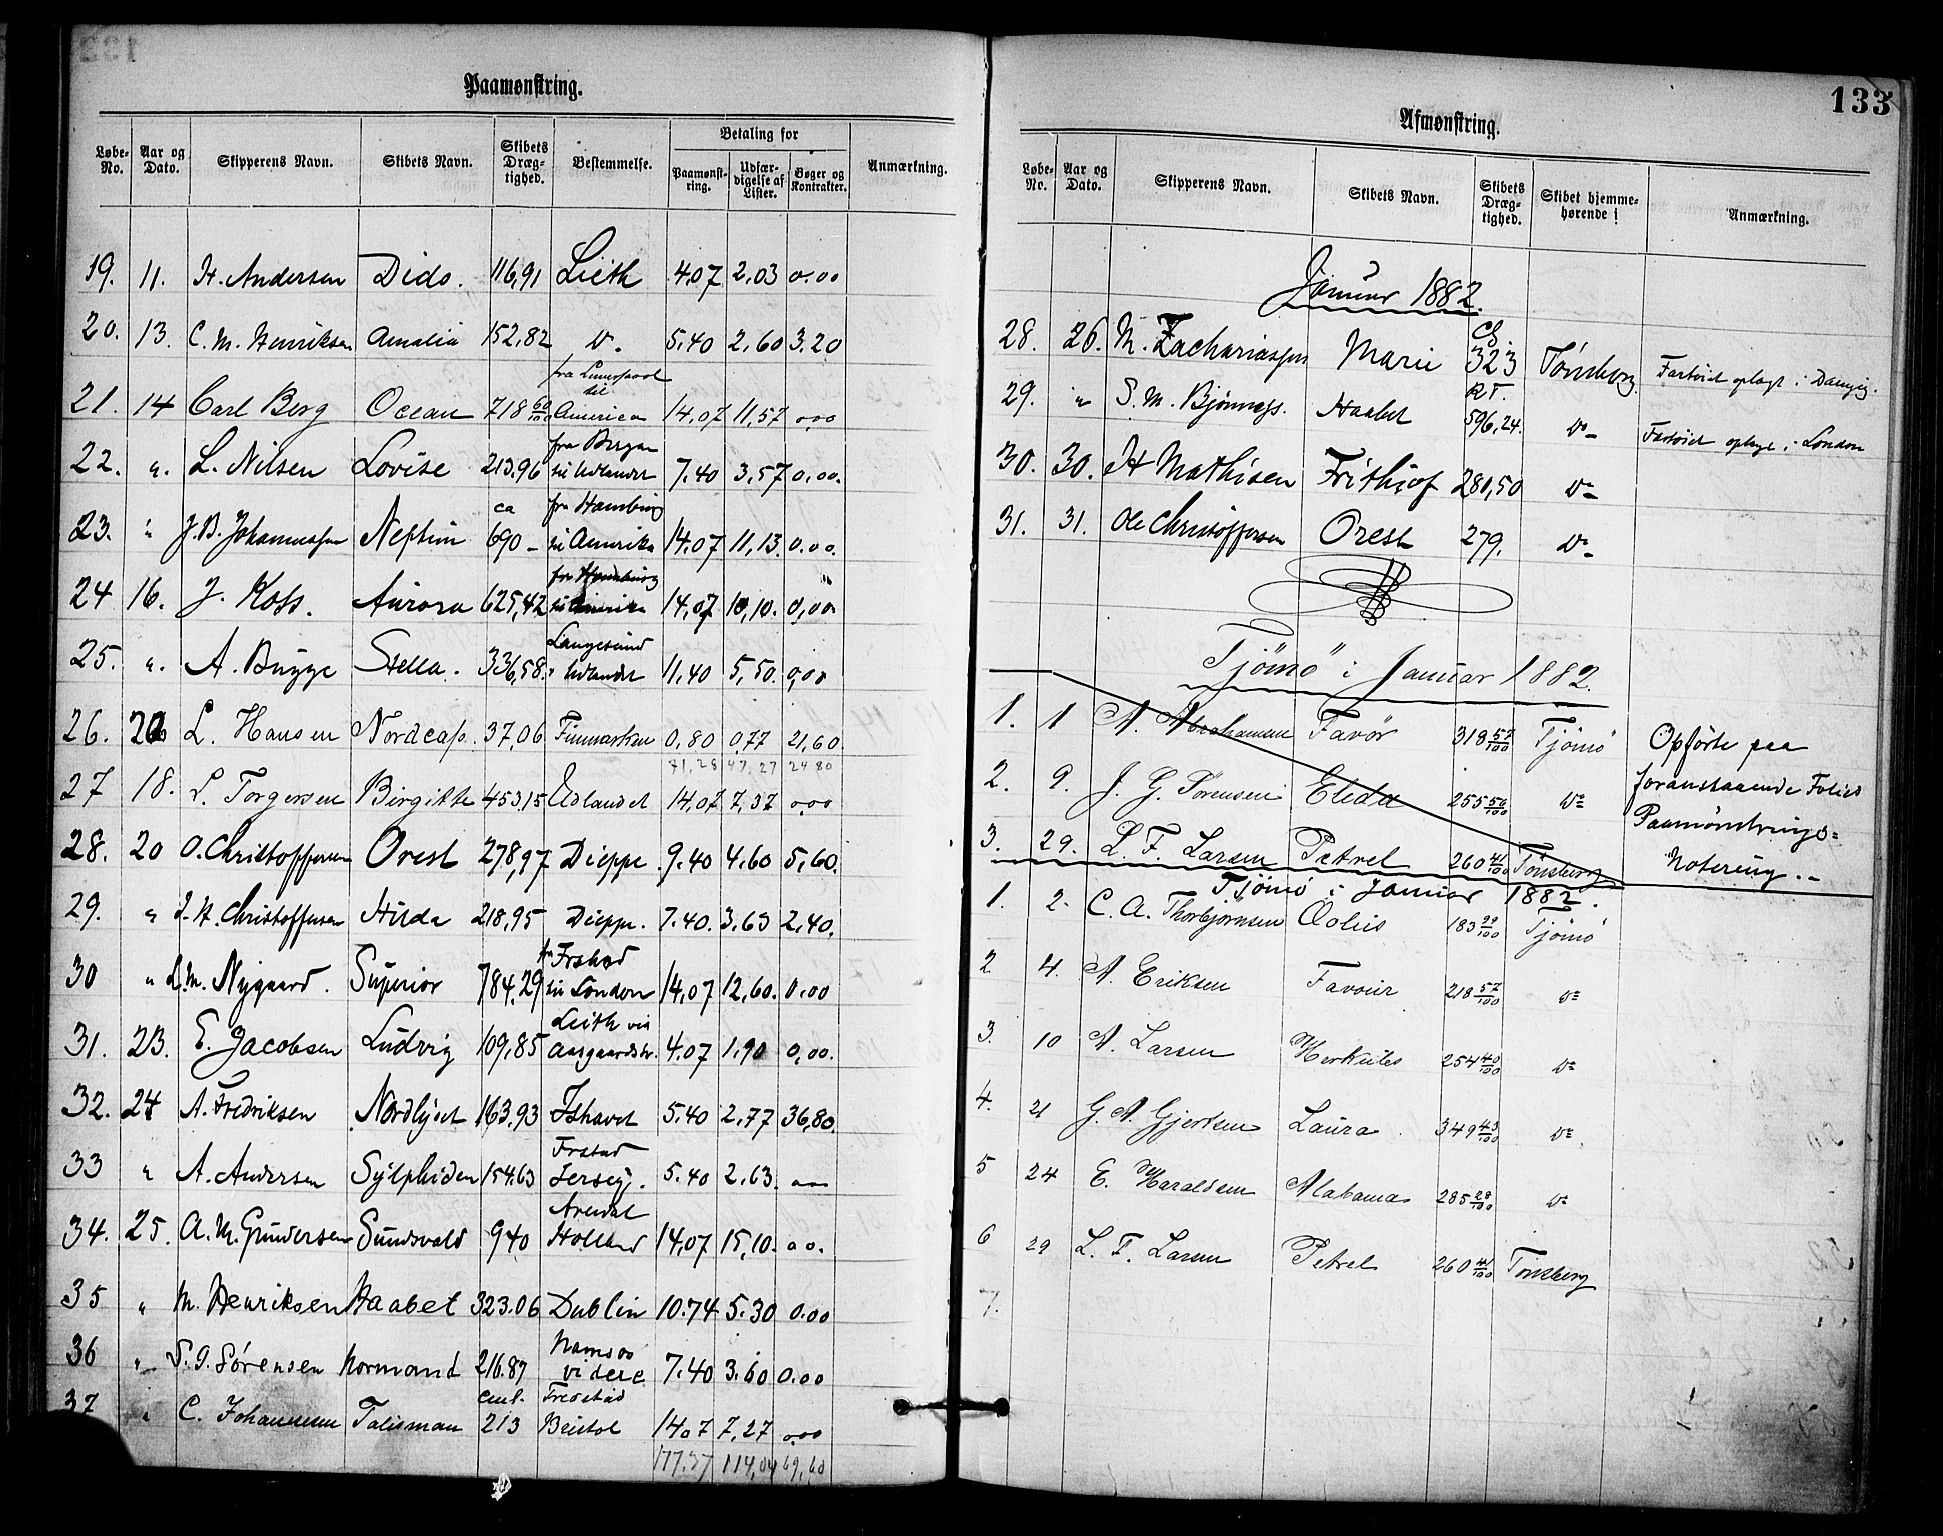 Paamønstring.
Løbe-No. Aar og Dato. Skipperens Navn. Skibets Navn. Skibets Dræg-tighed. Bestemmelse. Betaling for Paamønst-ring. Udfær-digelse af Lister. Bøger og Kontrakter. Anmærkning.
19. 11. H. Andersen Dido. 116,91 Lieth 4.07 2,03 0.00
20. 13. C. M. Henriksen Amalia 152,82 Do. 5.40 2,60 3.20
fra Liverpool til
21. 14 Carl Berg Ocean 718 60/100 America 14,07 11,57 0,00
fra Bergen
22. " L. Nilsen Lovise 213.96 til Udlandet 7.40 3,57 0,00.
ca fra Hamburg
23. " J. B. Johannessen Neptun 690 – til Amerika 14.07 11,13. 0.00.
fra Hamburg
24 16. J. Koss. Aurora 625,42 til Amerika 14,07 10,10. 0,00.
Langesund
25. " A. Bugge Stella. 336,58. " Udlandet 11,40 5,50. 0,00
26. 20 L. Hansen Nordcap. 37,06 Finmarken 0,80 0,77 21,60
71,28 47,27 24 80
27 18. L. Torgersen Birgitte 453,15 Udlandet 14,07 7,37 0,00
28. 20 O. Christoffersen Orest 278,97 Dieppe. 9.40 4.60 5,60.
29. " J. H. Christoffersen Hilda 218,95 Dieppe. 7.40. 3,63 2,40.
fr Frstad
30 " L. M. Nygaard. Superior 784,29 til London 14,07 12,60. 0.00
Leith via
31. 23. E. Jacobsen Ludvig 109,85 Aasgaardstr. 4.07 1,90 0,00.
32. 24 A. Fredriksen Nordlyset 163.93 Ishavet 5.40 2,77 36,80.
Frstad
33 " A. Andersen Sylphiden 154.63 Jersey. 5.40 2,63.
Arendal
34. 25. A. M. Gundersen Sundsvald 940 Holland 14,07 15,10.
35 " M. Henriksen Haabet 323.06 Dublin 10.74 5.30 0.00
Namsos
36 " S. J. Sørensen Normand 216.87 videre 7.40 3.60 0.00
Fredstad
37 " C. Johannesen Talisman 213 Bristol 14,07 7,27 0,00
177.37 114,04 69,60
133
Afmønstring.
Løbe-No. Aar og Dato. Skipperens Navn. Skibets Navn. Skibets Dræg-tighed. Skibet hjemme-hørende i Anmærkning.
Januar 1882.
28. 26. M. Zachariassen Marie Cl. 323 Tønsberg Fartøiet oplagt i Danzig.
29. " S. M. Bjønness. Haabet R.T. 596,24. Do – Fartøiet oplagt i London
30. 30. H Mathisen Frithjof 280,50 Do –
31. 31. Ole Christoffersen Orest 279. Do –
Tjømø i Januar 1882.
1. 1 A. Abrahamsen Favør 318 57/100 Tjømø Opførte paa
2. 9. J. G. Sørensen Eleda 255 50/100 Do foranstaaende Folies
3. 29. L. F. Larsen Petrel 260 41/100 Tønsberg Paamønstrings=
Notering. –
Tjømø i Januar 1882.
1. 2. C. A. Thorbjørnsen Æolus 183 99/100 Tjømø
2 4. A. Eriksen Favour 218 57/100 Do
3. 10 A. Larsen Herkules 254 40/100 Do
4. 21 G. A. Gjertsen Laura 349 43/100 Do
5 24 E. Haraldsen Alabama 285 28/100 Do
6 29 L. F. Larsen Petrel 260 41/100 Tønsberg
7.